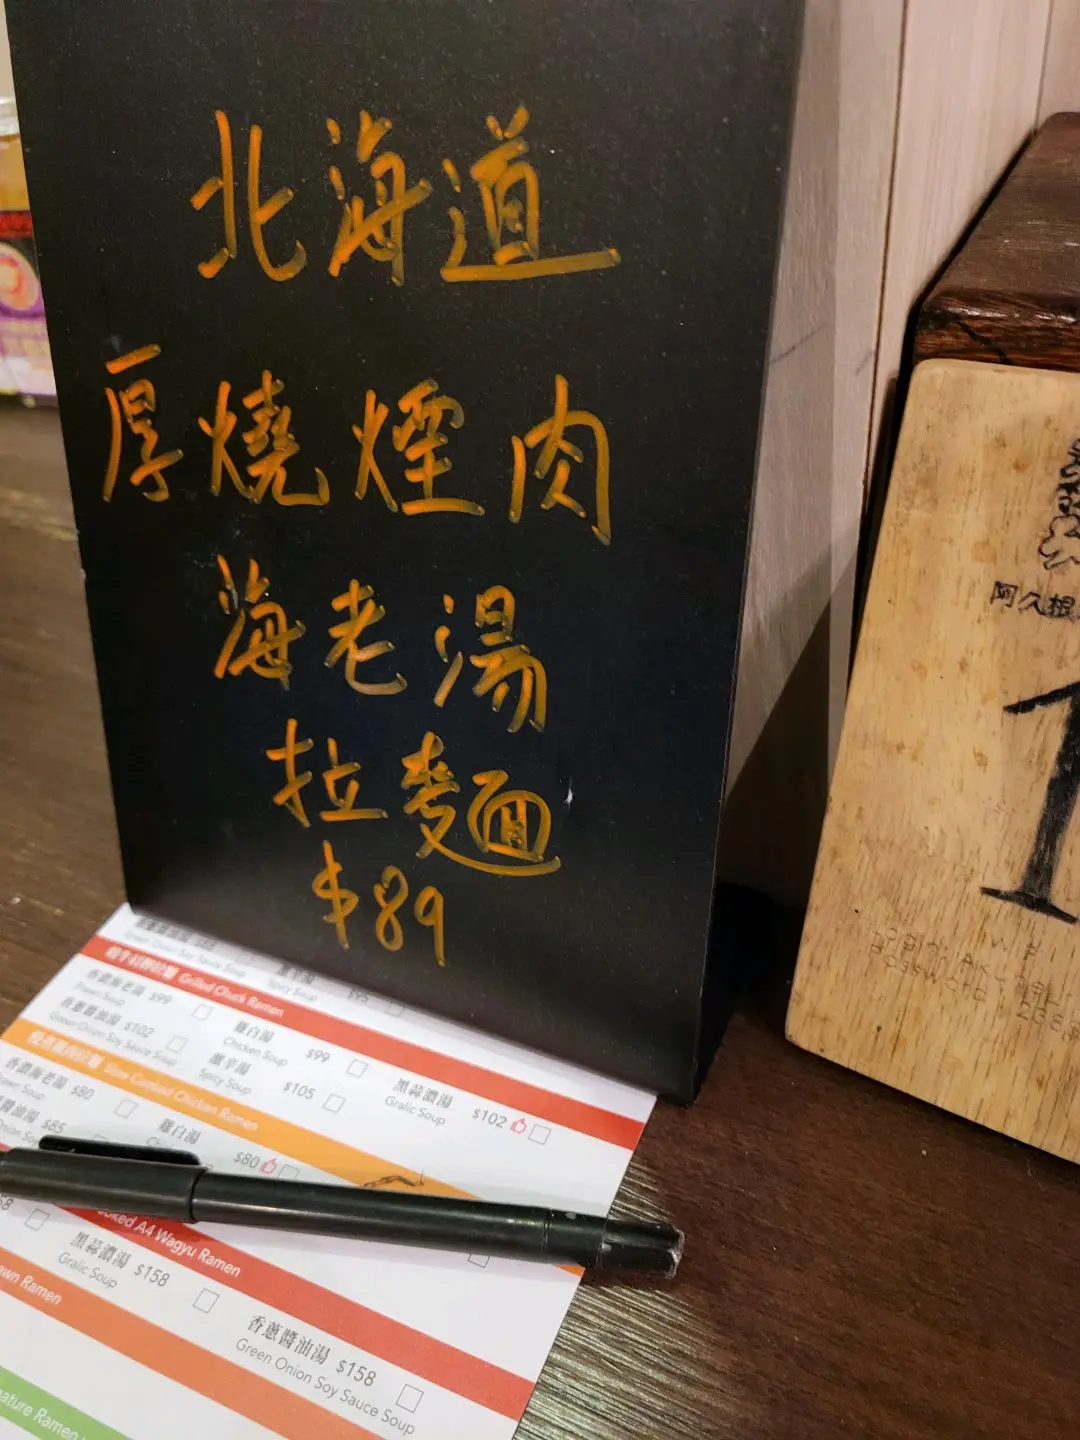 北海道
厚燒煙肉
海老湯
拉麵
$89
阿久根
1
Green Onion Soy Sauce Soup
Spicy Soup
Grilled Chuck Ramen
香濃海老湯 $99
Prawn Soup
雞白湯 $99
Chicken Soup
黑蒜濃湯 $102
Gralic Soup
香蔥醬油湯 $102
Green Onion Soy Sauce Soup
激辛湯 $105
Spicy Soup
Slow Cooked Chicken Ramen
香濃海老湯 $80
雞白湯 $80
醬油湯 $85
A4 Wagyu Ramen
黑蒜濃湯 $158
Gralic Soup
香蔥醬油湯 $158
Green Onion Soy Sauce Soup
Ramen
Ramen